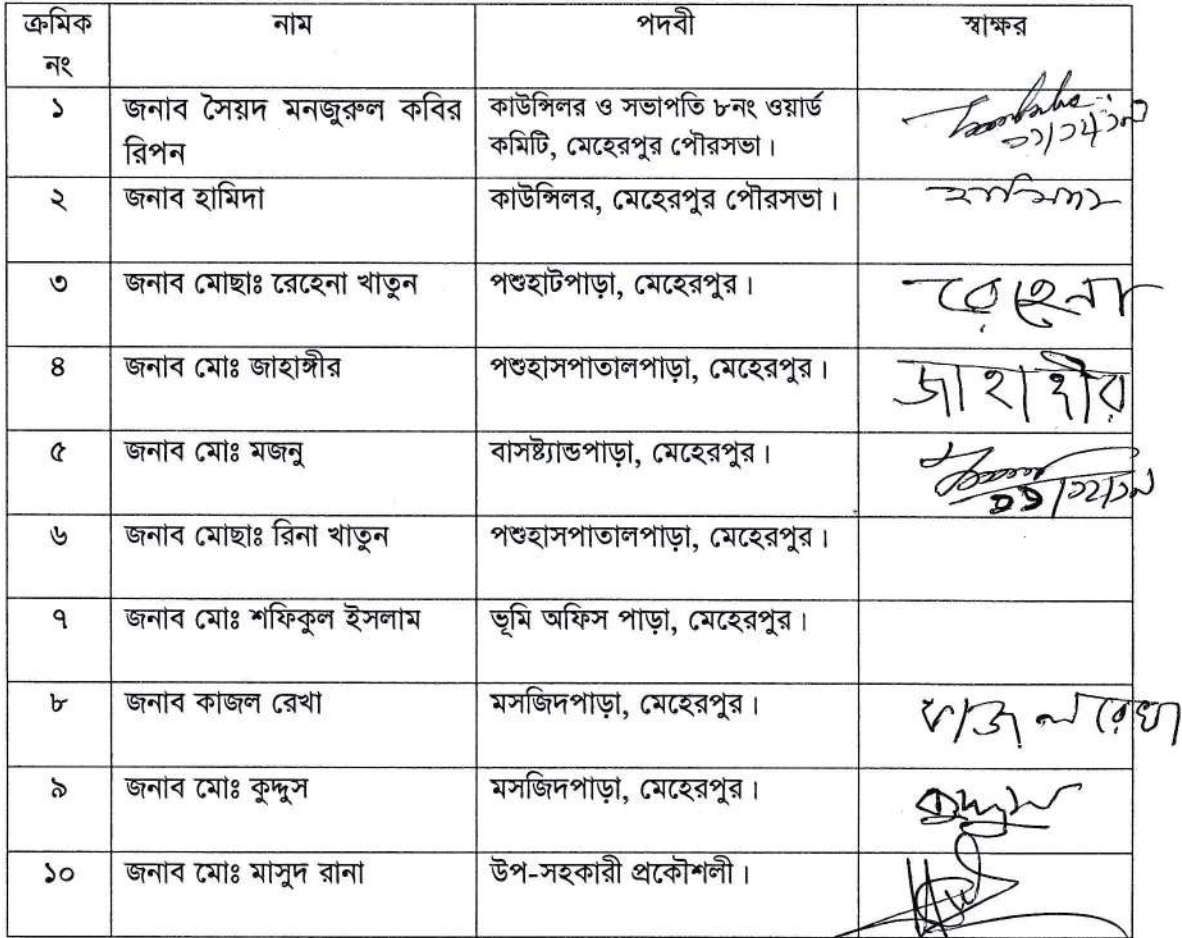 ক্রমিক নং নাম পদবী স্বাক্ষর
১ জনাব সৈয়দ মনজুরুল কবির রিপন কাউন্সিলর ও সভাপতি ৮নং ওয়ার্ড কমিটি, মেহেরপুর পৌরসভা।
২ জনাব হামিদা কাউন্সিলর, মেহেরপুর পৌরসভা। হামিদা
৩ জনাব মোছাঃ রেহেনা খাতুন পশুহাটপাড়া, মেহেরপুর। রেহেনা
৪ জনাব মোঃ জাহাঙ্গীর পশুহাসপাতালপাড়া, মেহেরপুর। জাহাঙ্গীর
৫ জনাব মোঃ মজনু বাসষ্ট্যান্ডপাড়া, মেহেরপুর।
৬ জনাব মোছাঃ রিনা খাতুন পশুহাসপাতালপাড়া, মেহেরপুর।
৭ জনাব মোঃ শফিকুল ইসলাম ভূমি অফিস পাড়া, মেহেরপুর।
৮ জনাব কাজল রেখা মসজিদপাড়া, মেহেরপুর। কাজল রেখা
৯ জনাব মোঃ কুদ্দুস মসজিদপাড়া, মেহেরপুর। কুদ্দুস
১০ জনাব মোঃ মাসুদ রানা উপ-সহকারী প্রকৌশলী।